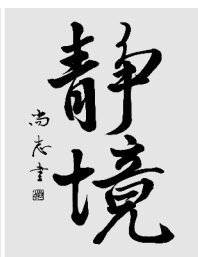 静境
尚志書